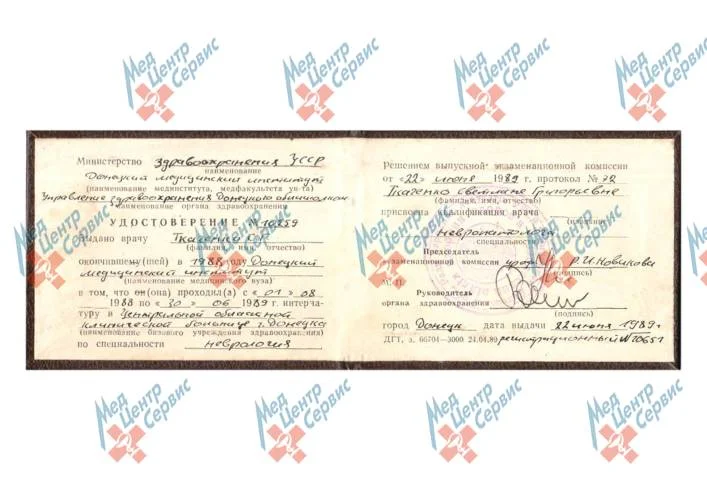 Министерство здравоохранения УССР
наименование
Донецкий медицинский институт
(наименование мединститута, медфакультета ун-та)
Управление здравоохранения Донецкого облисполкома
наименование органа здравоохранения
УДОСТОВЕРЕНИЕ № 10259
выдано врачу Ткаченко С.Г.
(фамилия, имя, отчество)
окончившему(шей) в 1988 году Донецкий
медицинский институт
(наименование медицинского вуза)
в том, что он(она) проходил(а) с «01» 08
1988 по «30» 06 1989 г. интерна-
туру в Центральной областной
клинической больнице г. Донецка
(наименование базового учреждения здравоохранения)
по специальности неврология
Решением выпускной экзаменационной комиссии
от «22» июня 1989 г. протокол № 72
Ткаченко Светлане Григорьевне
(фамилия, имя, отчество)
присвоена квалификация врача
(название
невропатолога
специальности)
Председатель
экзаменационной комиссии проф. Р.И. Новикова
(подпись)
М. П.
Руководитель
органа здравоохранения
(подпись)
город Донецк дата выдачи 22 июня 1989 г.
ДГТ, з. 66701—3000 24.04.89 регистрационный № 10651
Мед Центр Сервис
Мед Центр Сервис
Мед Центр Сервис
Мед Центр Сервис
Мед Центр Сервис
Мед Центр Сервис
Мед Центр Сервис
Мед Центр Сервис
Мед Центр Сервис
Мед Центр Сервис
Мед Центр Сервис
Мед Центр Сервис